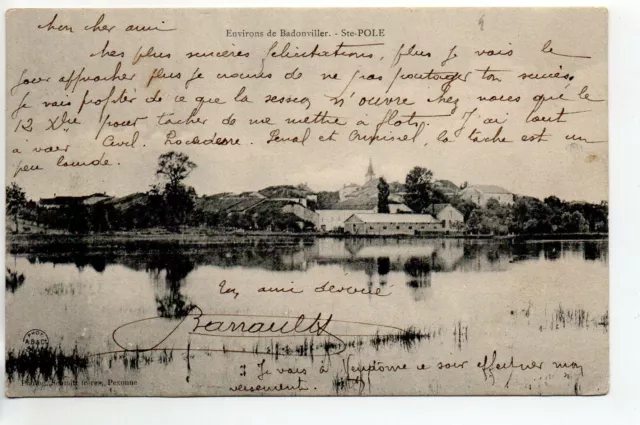 Mon cher ami
Environs de Badonviller. - Ste-POLE
mes plus sincères félicitations, plus je vois le
jour approcher plus je de ne pas partager ton succès,
Je vais profiter de ce que la session n'ouvre chez nous que le
12 Xbre pour tâcher de me mettre à flots. J'ai tout
à voir Civil, Procédure, Pénal et Criminel, la tâche est un
peu lourde.
Ton ami dévoué
Barrault
Je vais à Vendôme ce soir effectuer mon
versement.